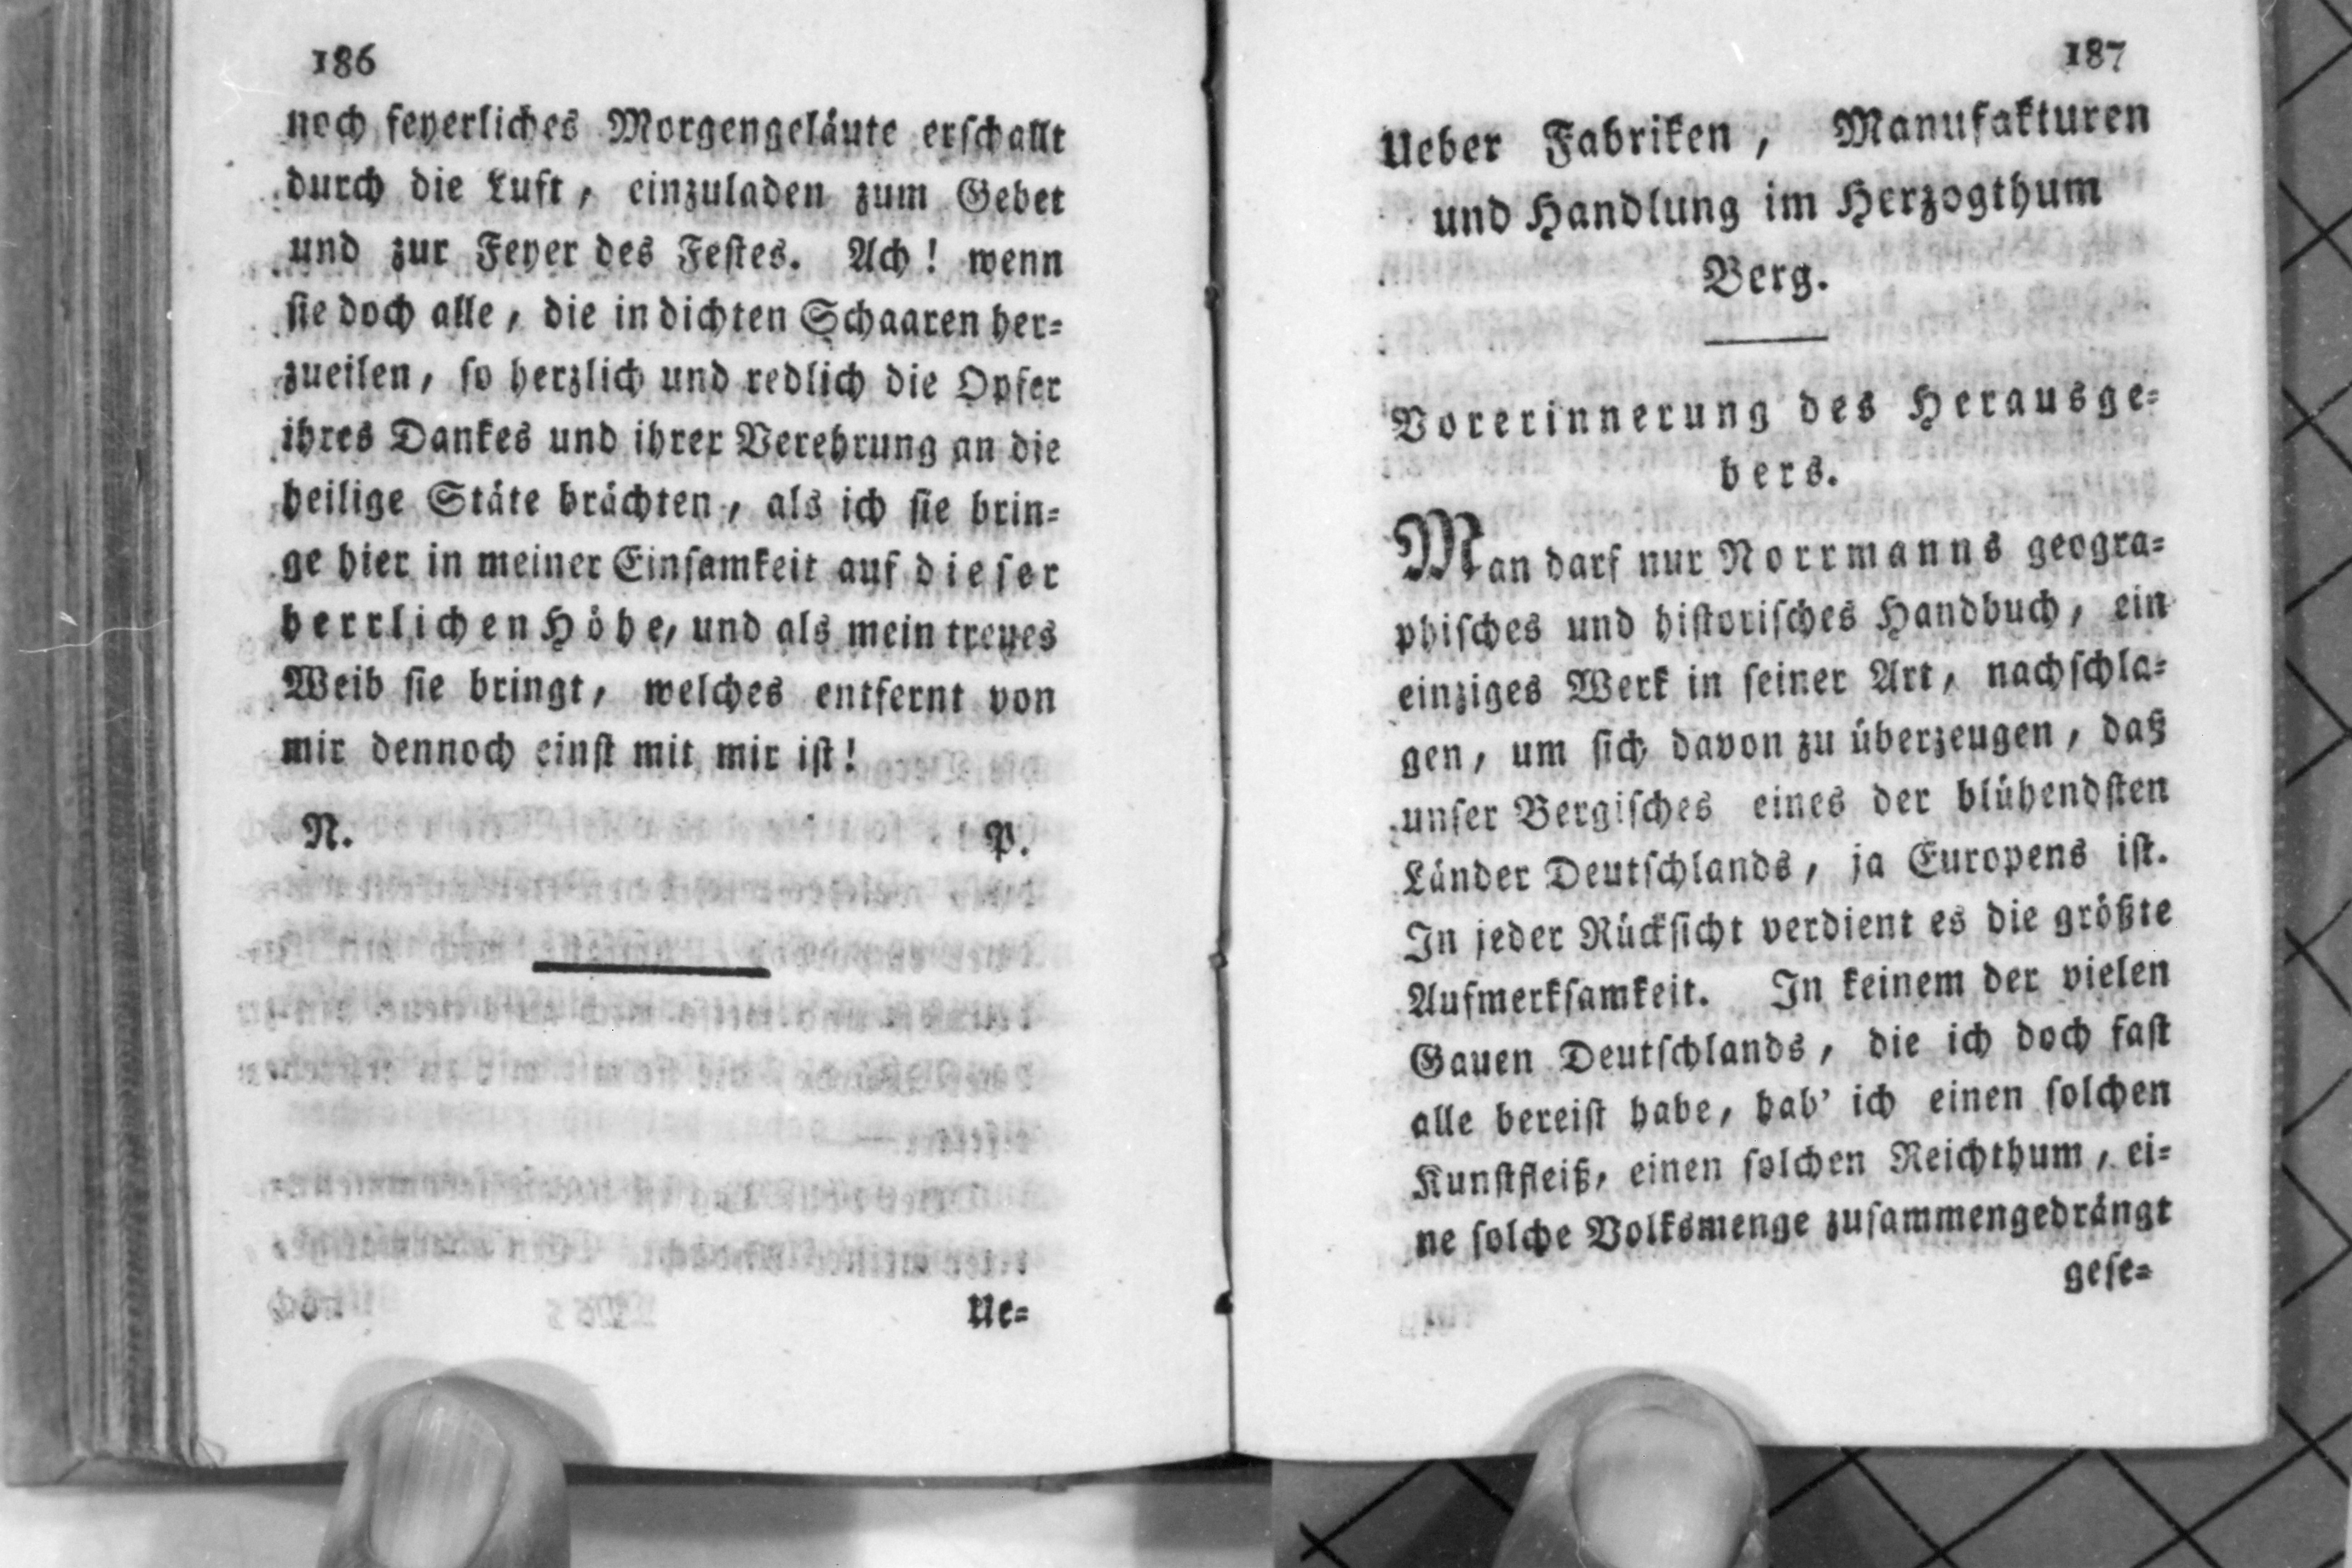 186
noch feyerliches Morgengeläute erschallt
durch die Luft, einzuladen zum Gebet
und zur Feyer des Festes. Ach! wenn
sie doch alle, die in dichten Schaaren her=
zueilen, so herzlich und redlich die Opfer
ihres Dankes und ihrer Verehrung an die
heilige Stäte brächten, als ich sie brin=
ge hier in meiner Einsamkeit auf dieser
herrlichen Höhe, und als mein treues
Weib sie bringt, welches entfernt von
mir dennoch einst mit mir ist!
N. P.
Ue=
187
Ueber Fabriken, Manufakturen
und Handlung im Herzogthum
Berg.
Vorerinnerung des Herausge=
bers.
Man darf nur Norrmanns geogra=
phisches und historisches Handbuch, ein
einziges Werk in seiner Art, nachschla=
gen, um sich davon zu überzeugen, daß
unser Bergisches eines der blühendsten
Länder Deutschlands, ja Europens ist.
In jeder Rücksicht verdient es die größte
Aufmerksamkeit. In keinem der vielen
Gauen Deutschlands, die ich doch fast
alle bereist habe, hab' ich einen solchen
Kunstfleiß, einen solchen Reichthum, ei=
ne solche Volksmenge zusammengedrängt
gese=